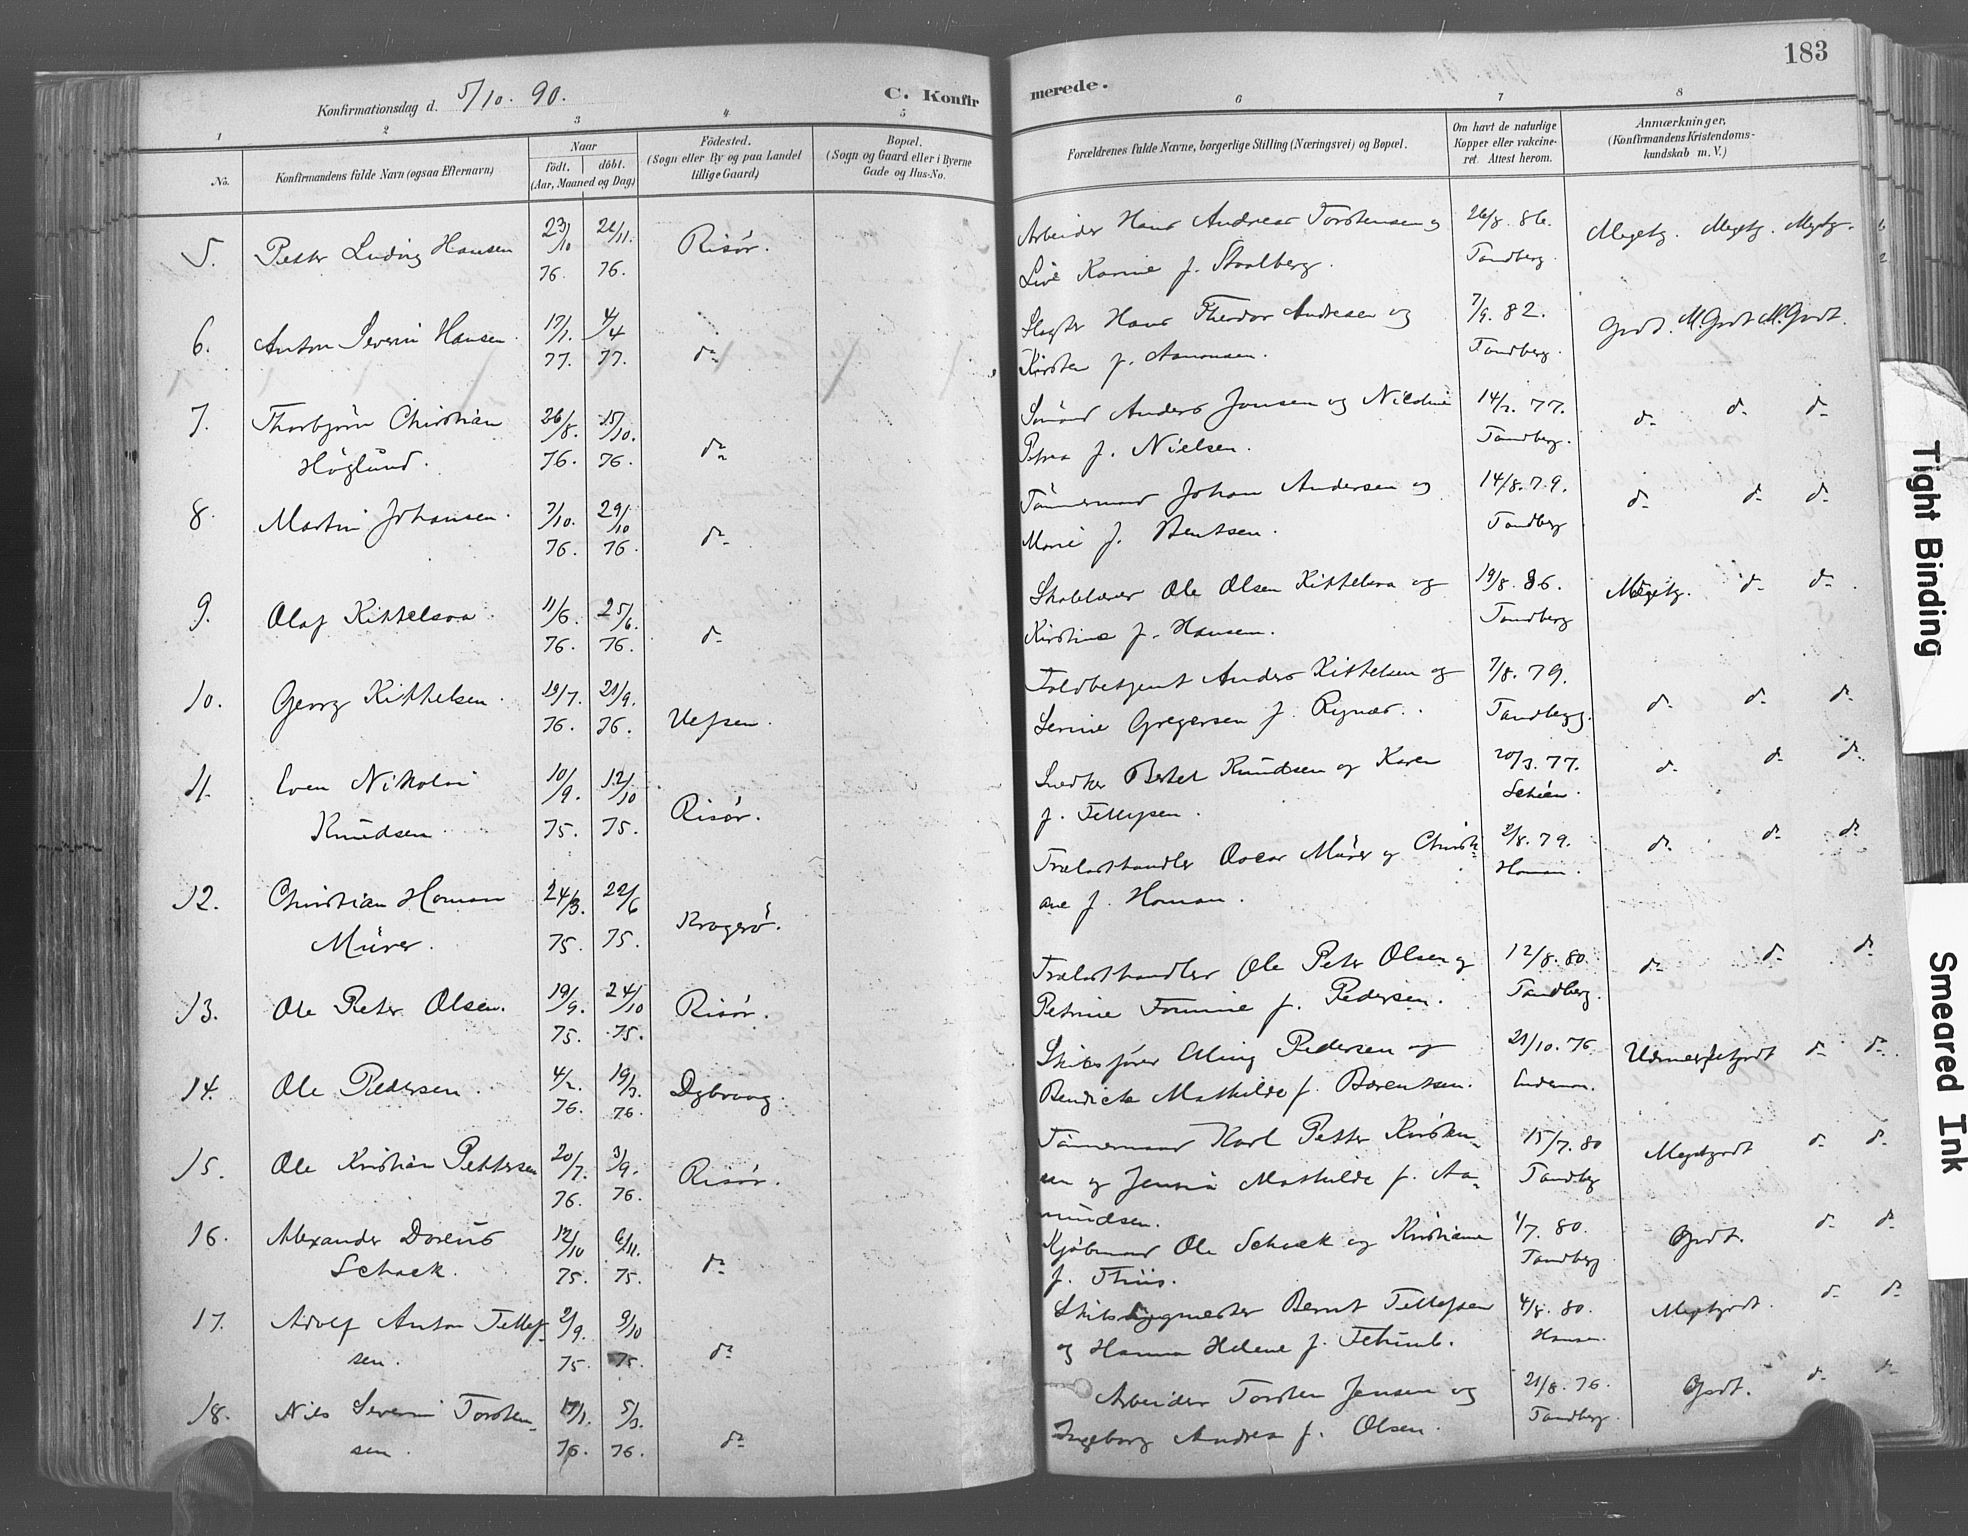 183
Konfirmationsdag d. 5/10. 90.
C. Konfir
merede.
1 2 3 4 5 6 7 8
No.
Konfirmandens fulde Navn (ogsaa Efternavn)
Naar
født. døbt.
(Aar, Maaned og Dag)
Fødested.
(Sogn eller By og paa Landet
tillige Gaard)
Bopæl.
(Sogn og Gaard eller i Byerne
Gade og Hus-No.
Forældrenes fulde Navne, borgerlige Stilling (Næringsvei) og Bopæl.
Om havt de naturlige
Kopper eller vakcine-
ret. Attest herom.
Anmærkninger,
(Konfirmandens Kristendoms-
kundskab m. V.)
5. Petter Ludvig Hansen 23/10 76. 26/11. 76. Risør.
Arbeider Hans Andreas Torstensen og
Live Karine f. Staalberg.
26/8. 86.
Tandberg.
Megetg. Megetg. Megetg.
6. Anton Severin Hansen. 17/1. 77. 4/4 77. do
Slagter Hans Theodor Andresen og
Kirsten f. Aanonsen.
7/9. 82.
Tandberg.
Godt. M.Godt M.Godt.
7. Thorbjørn Christian
Høglund.
26/8. 76. 15/10. 76. do
Anders Jonsen og Nicoline
Petrea f. Nielsen.
14/2. 77.
Tandberg.
do do do
8. Martin Johansen. 7/10. 76. 29/10 76. do
Tømmermand Johan Andersen og
Marie f. Bentsen.
14/8. 79.
Tandberg
do do do
9. Olaf Kittelsaa. 11/6. 76. 25/6. 76. do
Skolelærer Ole Olsen Kittelsaa og
Kirstine f. Hansen.
19/8. 86.
Tandberg
Megetg. do do
10. Georg Kittelsen. 19/7. 76. 21/9. 76. Vefsen.
Toldbetjent Anders Kittelsen og
Serine Gregersen f. Rynær.
7/8. 79.
Tandberg.
do do do
11. Even Nikolai
Knudsen
10/9. 75. 12/10 75. Risør.
Snedker Bertel Knudsen og Karen
f. Tellefsen.
20/3. 77.
Schiøn.
do do do
12. Christian Homan
Mürer.
24/3. 75. 22/6 75. Kragerø.
Trælasthandler Oscar Mürer og Christi-
ane f. Homan.
2/8. 79.
Homan.
do do do
13. Ole Peter Olsen. 19/9. 75. 24/10 75. Risør.
Trælasthandler Ole Peter Olsen og
Petrine Tomine f. Pedersen.
12/8. 80.
Tandberg.
do do do
14. Ole Pedersen. 4/2. 76. 19/3. 76. Dybvaag.
Skibsfører Elling Pedersen og
Bendicte Mathilde f. Berentsen.
21/10. 76.
Udmerketgodt do do
15. Ole Kristian Pettersen 20/7. 76. 3/9. 76. Risør.
Tømmermand Karl Petter Kristen-
sen og Jensine Mathilde f. Aa-
mundsen.
15/7. 80
Tandberg
Megetgodt do do
16. Alexander Dorenus
Schack.
12/10 75. 6/11. 75. do
Kjøbmand Ole Schack og Kristiane
f. Thiis.
1/7. 80.
Tandberg
Godt. do do
17. Adolf Anton Tellef-
sen.
2/9. 75. 9/10 75. do
Skibsbygmester Bernt Tellefsen
og Hanna Helene f.
4/8. 80.
Hansen
Megetgodt. do do
18. Nils Severin Torsten-
sen.
17/1. 76. 5/3. 76. do
Arbeider Torsten Jensen og
Ingeborg Andrea f. Olsen.
21/8. 76.
Tandberg.
Godt. do do
Tight Binding
Smeared Ink